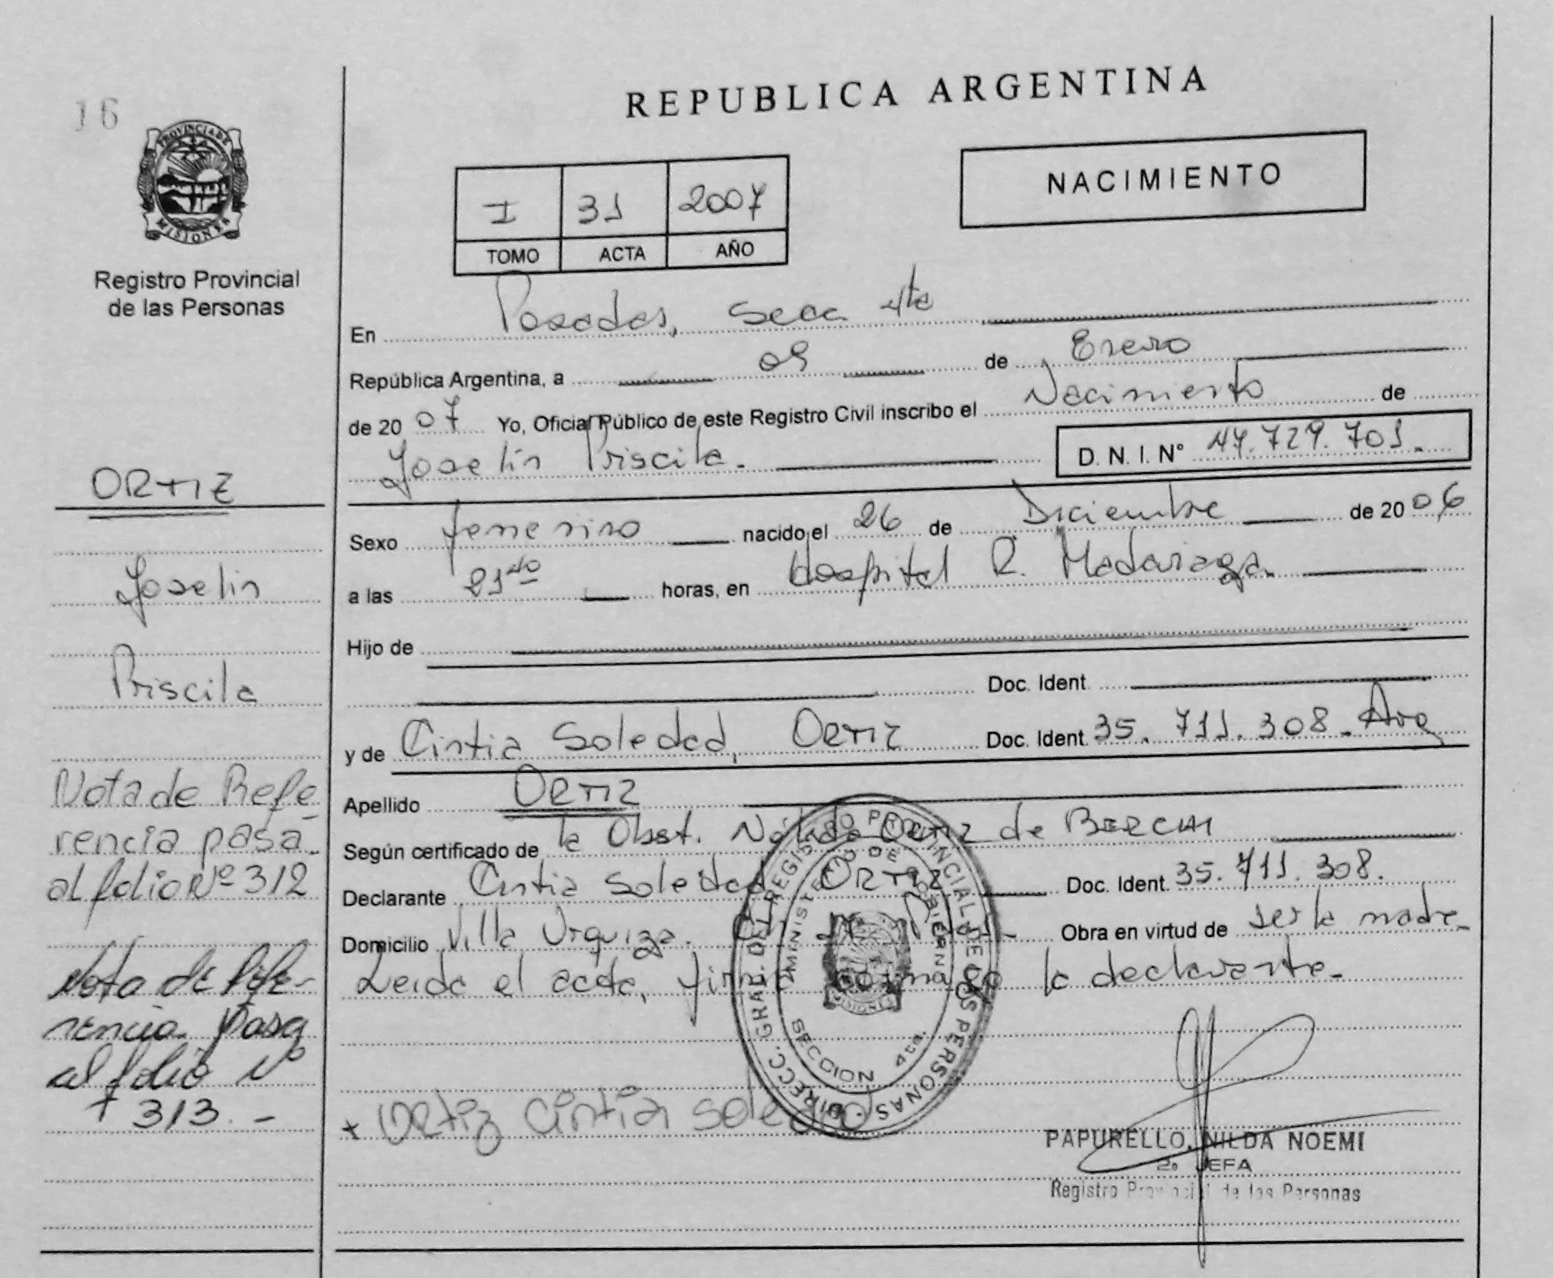 16
REPUBLICA ARGENTINA
PROVINCIA DE
MISIONES
Registro Provincial
de las Personas
I 31 2007
TOMO ACTA AÑO
NACIMIENTO
En Posadas, Secc 4ta
República Argentina, a 09 de Enero
de 2007 Yo, Oficial Público de este Registro Civil inscribo el Nacimiento de
Joselin Priscila. D. N. I. Nº 47.729.701.
ORTIZ
Joselin
Priscila
Sexo femenino nacido el 26 de Diciembre de 2006
a las 21 40 horas, en Hospital R. Madariaga.
Hijo de
Doc. Ident.
y de Cintia Soledad, ORTIZ Doc. Ident. 35.711.308. Arg
Apellido ORTIZ
Según certificado de la Obst. Nélida Ortiz de
Declarante Cintia Soledad ORTIZ Doc. Ident. 35.711.308.
Domicilio Villa Urquiza. Obra en virtud de ser la madre
Leída el acta, firma la declarante.
Nota de Refe
rencia pasa
al folio Nº 312
Nota de Refe-
rencia pasa
al folio Nº
313.-
DIRECC. GRAL. DEL REGISTRO PROVINCIAL DE LAS PERSONAS
MINISTERIO DE GOBIERNO
SECCION 4ta.
x Ortiz Cintia Soledad
PAPURELLO, NILDA NOEMI
2a JEFA
Registro Provincial de las Personas